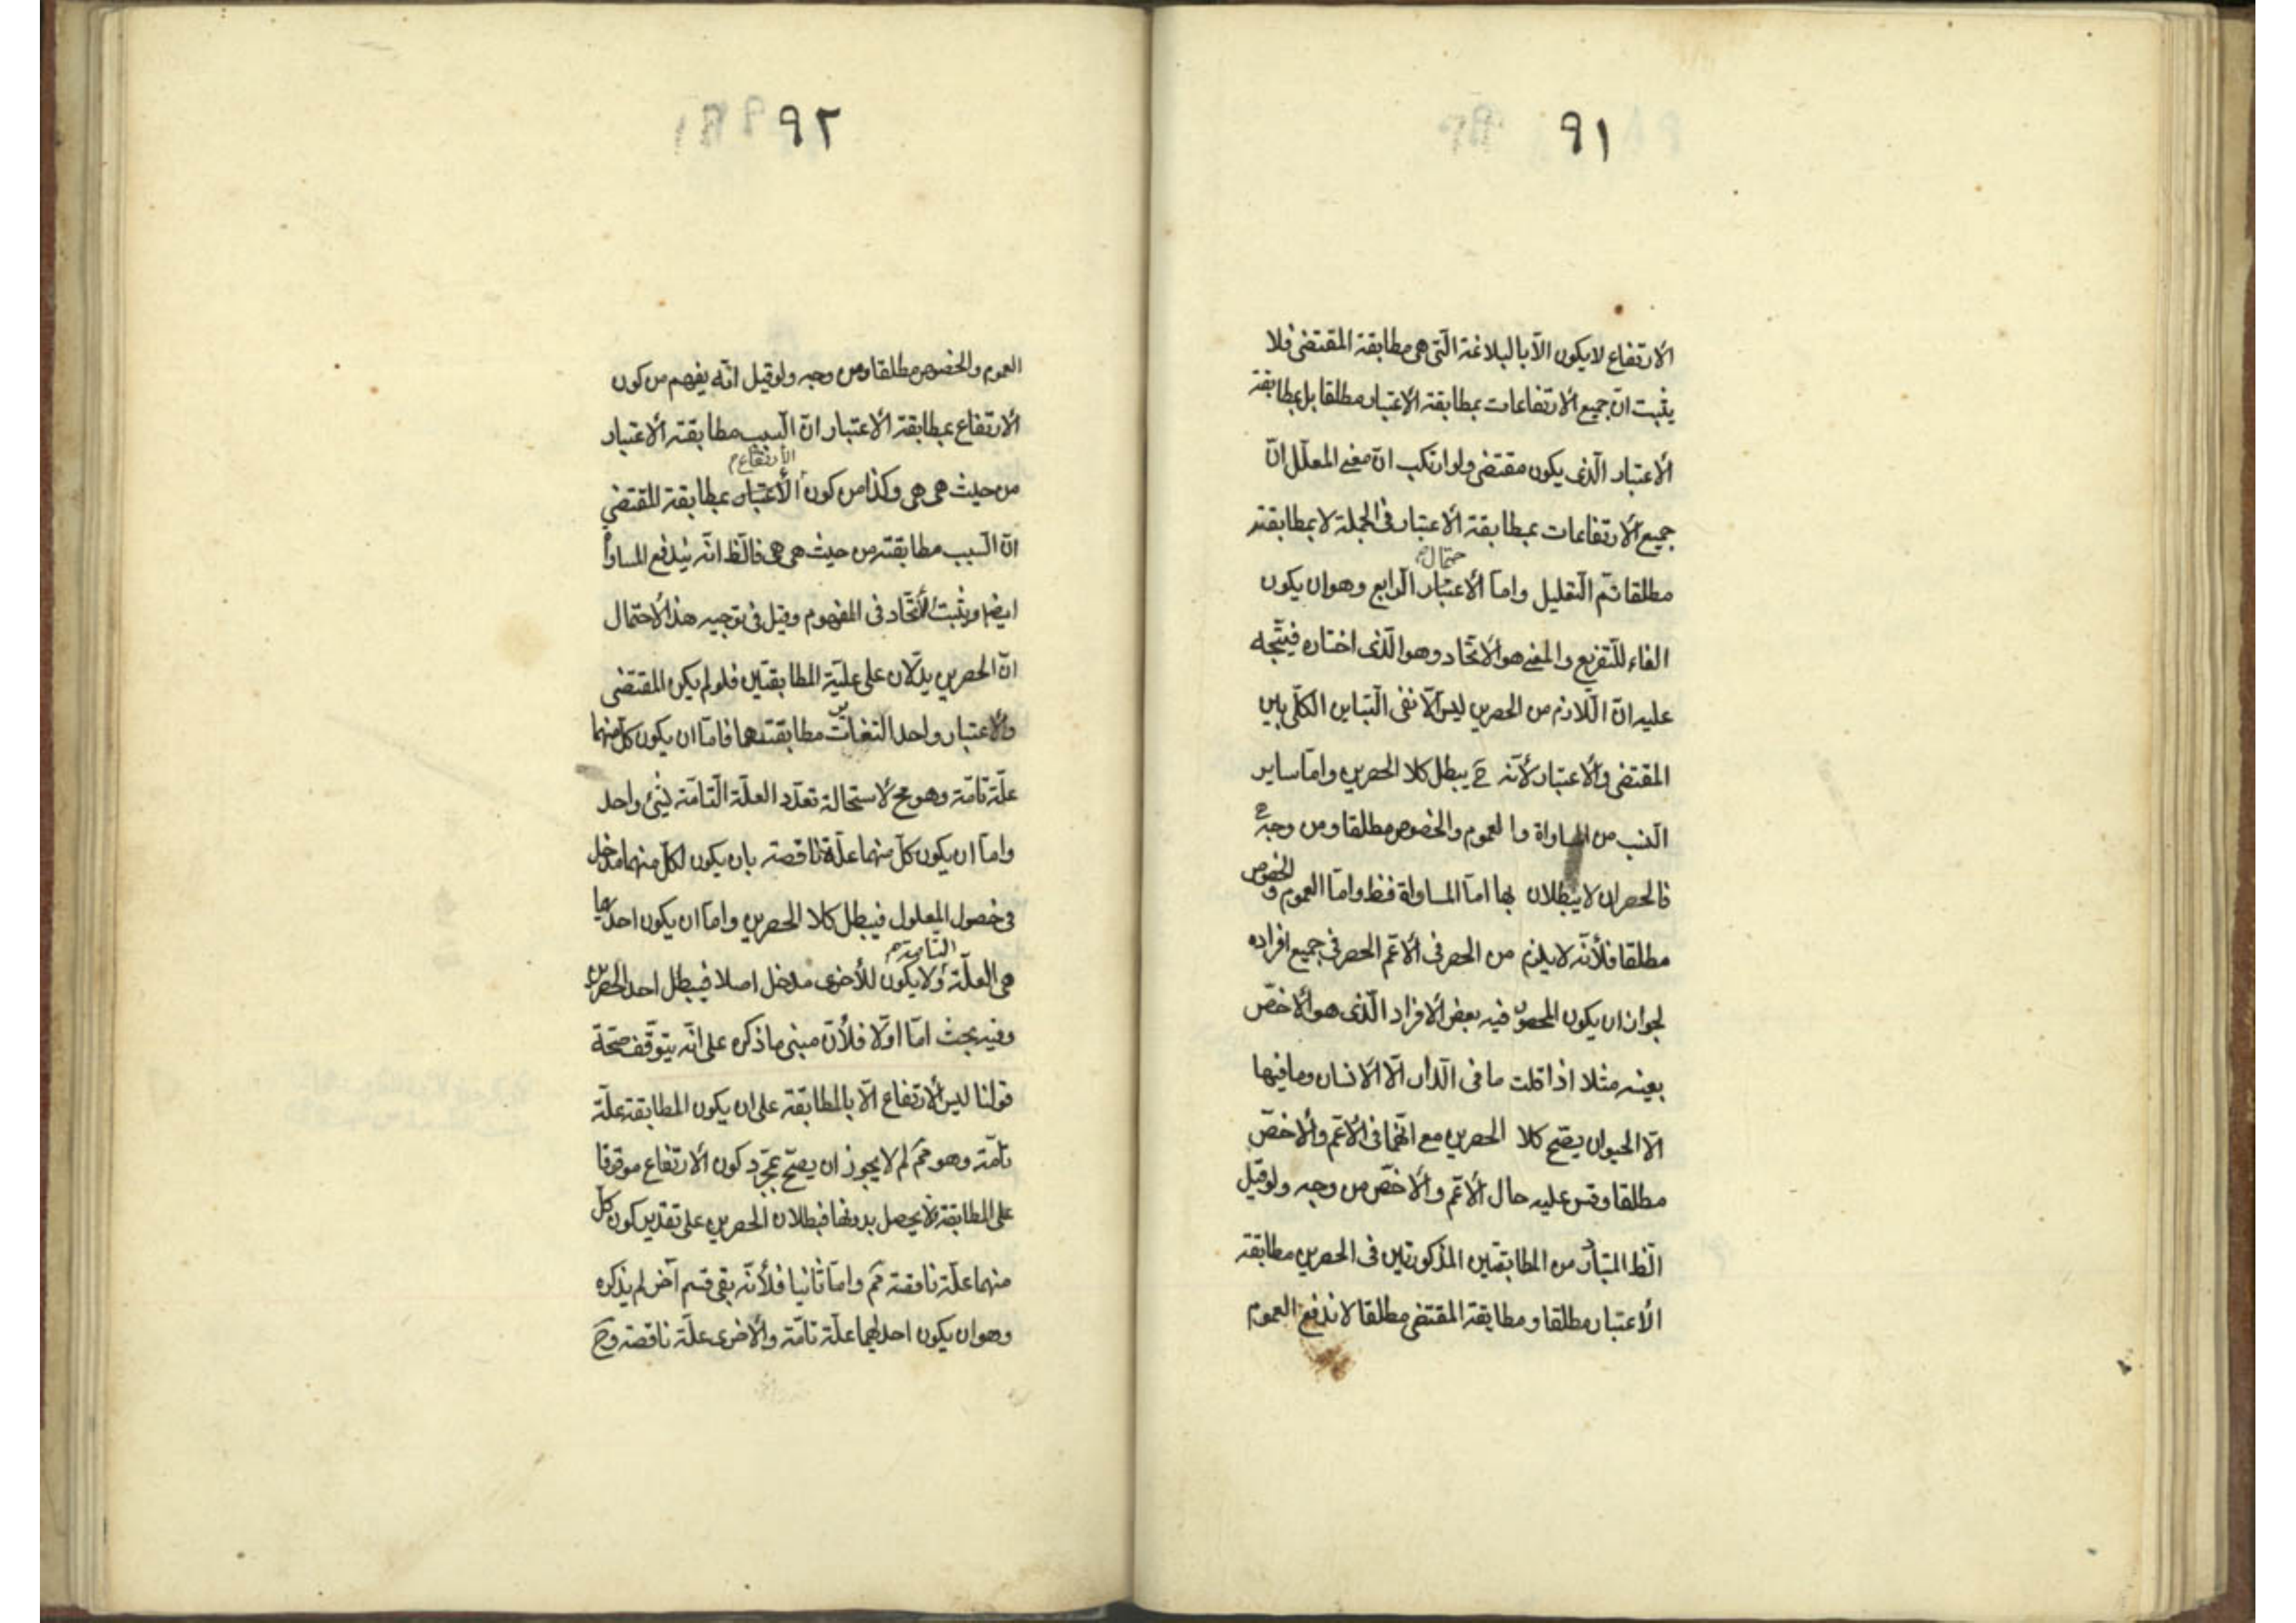 ٩١
الارتفاع لا يكون الّا بالبلاغة الّتى هى مطابقة المقتضى فلا
يثبت انّ جميع الارتفاعات بمطابقة الاعتبار مطلقا بل بمطابقة
الاعتبار الّذى يكون مقتضى ولو ارتكب انّ معنى المعلّل انّ
جميع الارتفاعات بمطابقة الاعتبار فى الجملة لا بمطابقته
حتمال
مطلقا تمّ التّعليل وامّا الاعتبار الرّابع وهو ان يكون
الفاء للتّفريع والمعنى هو الاتّحاد وهو الّذى اختاره فيتّجه
عليه انّ اللّازم من الحصرين ليس الّا نفى التّباين الكلّى بين
المقتضى والاعتبار لأنّه ح يبطل كلا الحصرين وامّا ساير
النّسب من المساواة والعموم والخصوص مطلقا ومن وجه
فالحصران لا يبطلان بها امّا المساواة فظ وامّا العموم والخصوص
مطلقا فلأنّه لا يلزم من الحصر فى الاعمّ الحصر فى جميع افراده
لجواز ان يكون المحصور فيه بعض الافراد الّذى هو الاخصّ
بعينه مثلا اذا قلت ما فى الدّار الّا الانسان وما فيها
الّا الحيوان يصحّ كلا الحصرين مع انّهما فى الاعمّ والاخصّ
مطلقا وقس عليه حال الاعمّ والاخصّ من وجه ولو قيل
الظ المتبادر من المطابقتين المذكورتين فى الحصرين مطابقة
الاعتبار مطلقا ومطابقة المقتضى مطلقا لاندفع العموم
٩٢
العموم والخصوص مطلقا ومن وجه ولو قيل انّه يفهم من كون
الارتفاع بمطابقة الاعتبار انّ السّبب مطابقة الاعتبار
الارتفاع م
من حيث هى هى وكذا من كون الاعتبار بمطابقة المقتضى
انّ السّبب مطابقته من حيث هى هى فالظ انّه يندفع المساواة
ايضا ويثبت الاتّحاد فى المفهوم وقيل فى توجيه هذا الاحتمال
انّ الحصرين يدلّان على علّية المطابقتين فلو لم يكن المقتضى
والاعتبار واحدا لتغايرت مطابقتهما فامّا ان يكون كلّ منهما
علّة تامّة وهو مح لاستحالة تعدّد العلّة التّامّة لشئ واحد
وامّا ان يكون كلّ منهما علّة ناقصة بان يكون لكلّ منهما مدخل
فى حصول المعلول فيبطل كلا الحصرين وامّا ان يكون احدهما
التّامة م
هى العلّة ولا يكون للأخرى مدخل اصلا فيبطل احد الحصرين
وفيه بحث امّا اوّلا فلأنّ مبنى ما ذكره على انّه يتوقّف صحّة
قولنا ليس الارتفاع الّا بالمطابقة على ان يكون المطابقة علّة
تامّة وهو مم لم لا يجوز ان يصحّ بمجرّد كون الارتفاع موقوفا
على المطابقة لا يحصل بدونها فبطلان الحصرين على تقدير كون كلّ
منهما علّة ناقصة مم وامّا ثانيا فلأنّه بقى قسم آخر لم يذكره
وهو ان يكون احدايهما علّة تامّة والاخرى علّة ناقصة وح